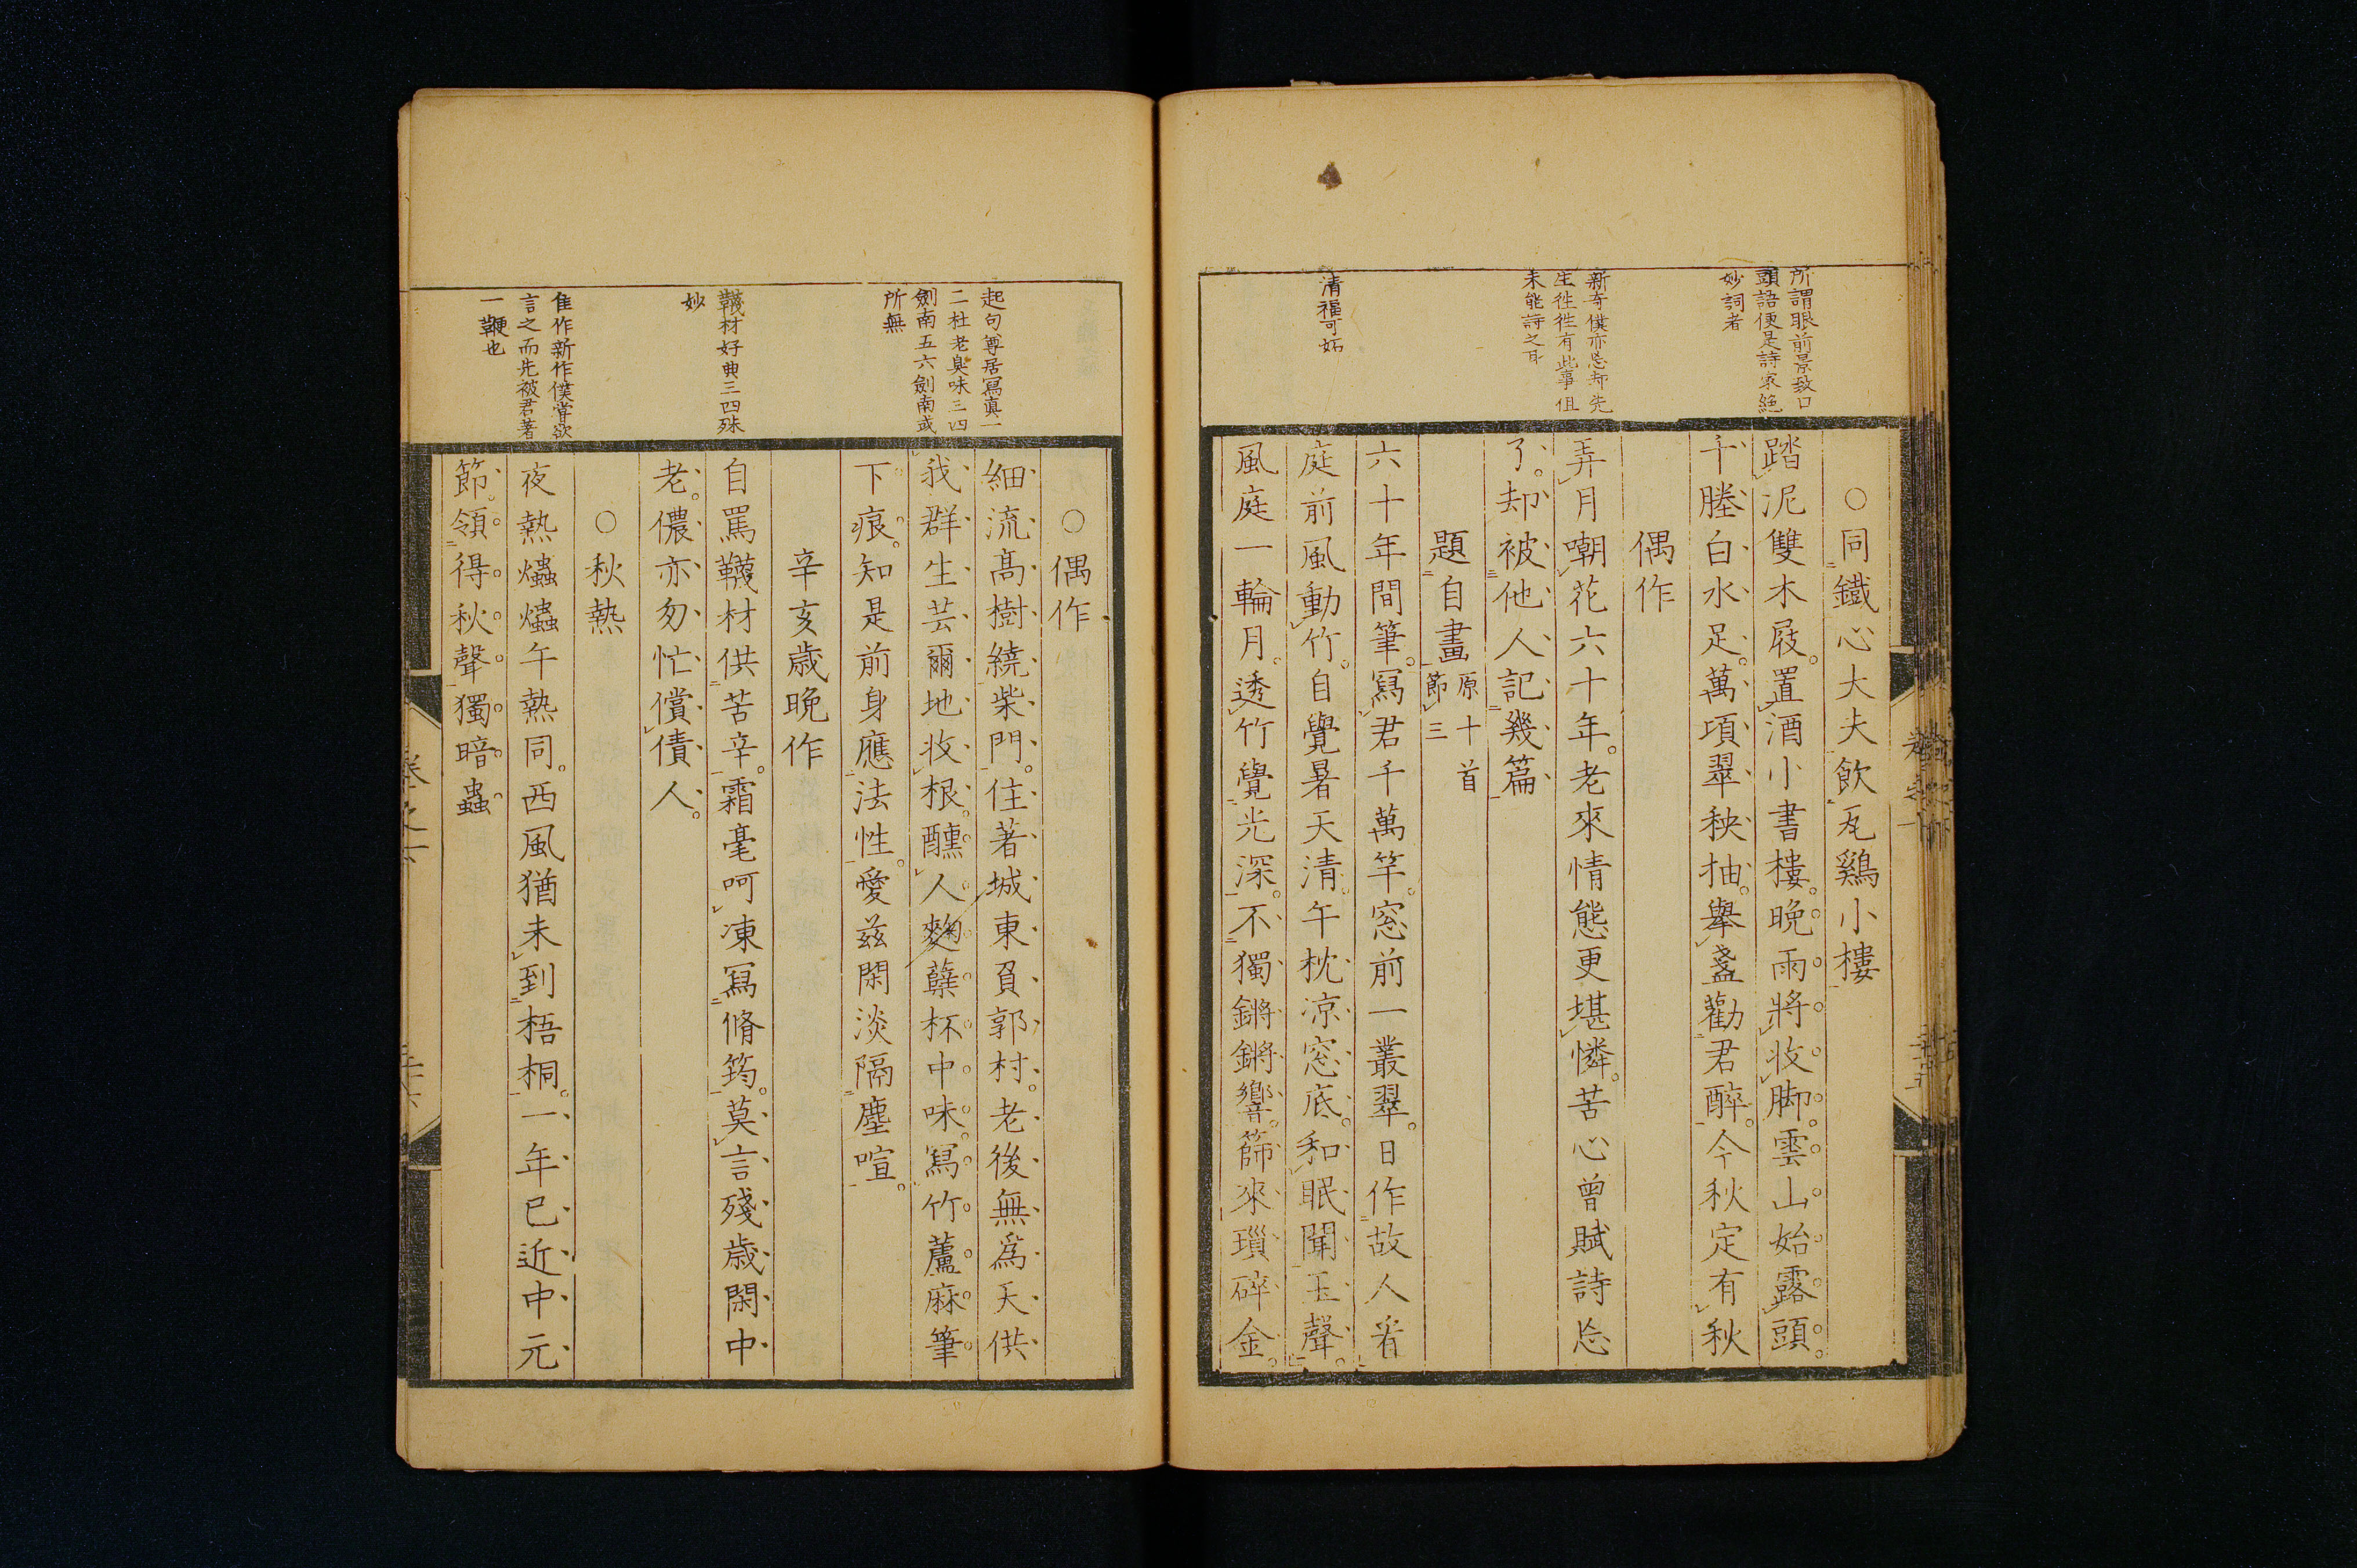 所謂眼前景致口
頭語便是詩家絶
妙詞者
新奇僕亦忘却先
生徃徃有此事但
未能詩之耳
清福可妬
○同鐵心大夫飲瓦鷄小樓
踏泥雙木屐置酒小書樓晩雨將收脚雲山始露頭
千塍白水足萬項翠秧抽擧盞勸君醉今秋定有秋
偶作
弄月嘲花六十年老來情態更堪憐苦心曾賦詩忘
了却被他人記幾篇
題自畫原十首節三
六十年間筆寫君千萬竿窓前一叢翠日作故人看
庭前風動竹自覺暑天清午枕凉窓底和眠聞玉聲
風庭一輪月透竹覺光深不獨鏘鏘響篩來瑣碎金
起句尊居寫眞一
二杜老臭味三四
劍南五六劍南或
所無
韈材好典三四殊
妙
隹作新作僕嘗欲
言之而先被君著
一鞭也
○偶作
細流高樹繞柴門住著城東負郭村老後無爲天供
我群生芸爾地收根醺人麴蘖杯中味寫竹蘆麻筆
下痕知是前身應法性愛兹閑淡隔塵喧
辛亥歳晩作
自罵韈材供苦辛霜毫呵凍寫脩筠莫言殘歳閑中
老儂亦匆忙償債人
○秋熱
夜熱爞爞午熱同西風猶未到梧桐一年已近中元
節領得秋聲獨暗蟲